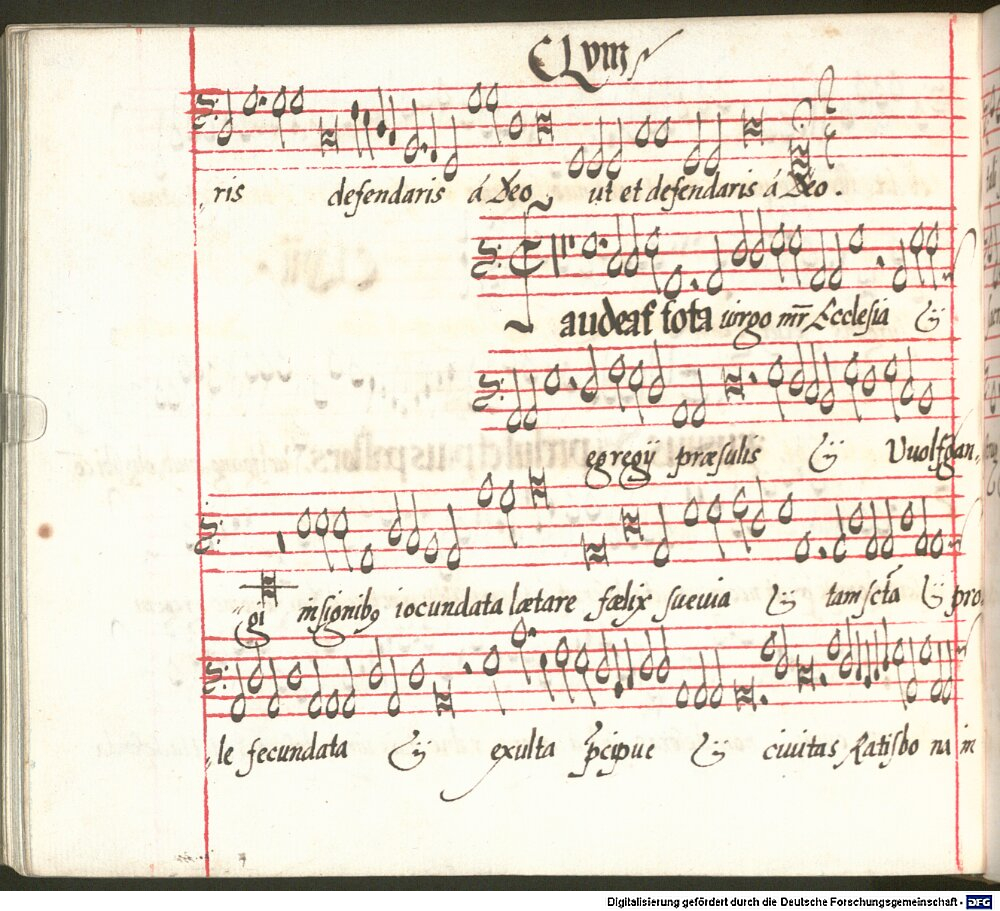 CLVIII
ris defendaris á Deo ut et defendaris á Deo.
audeat tota virgo mr̃ Ecclesia ij
egregij præsulis ij Vuolfgan,
gi insignibꝯ iocundata lætare fælix suevia ij tam sctã ij pro,
le fecundata ij exulta p̃cipue ij civitas Ratisbo na in
Digitalisierung gefördert durch die Deutsche Forschungsgemeinschaft - DFG